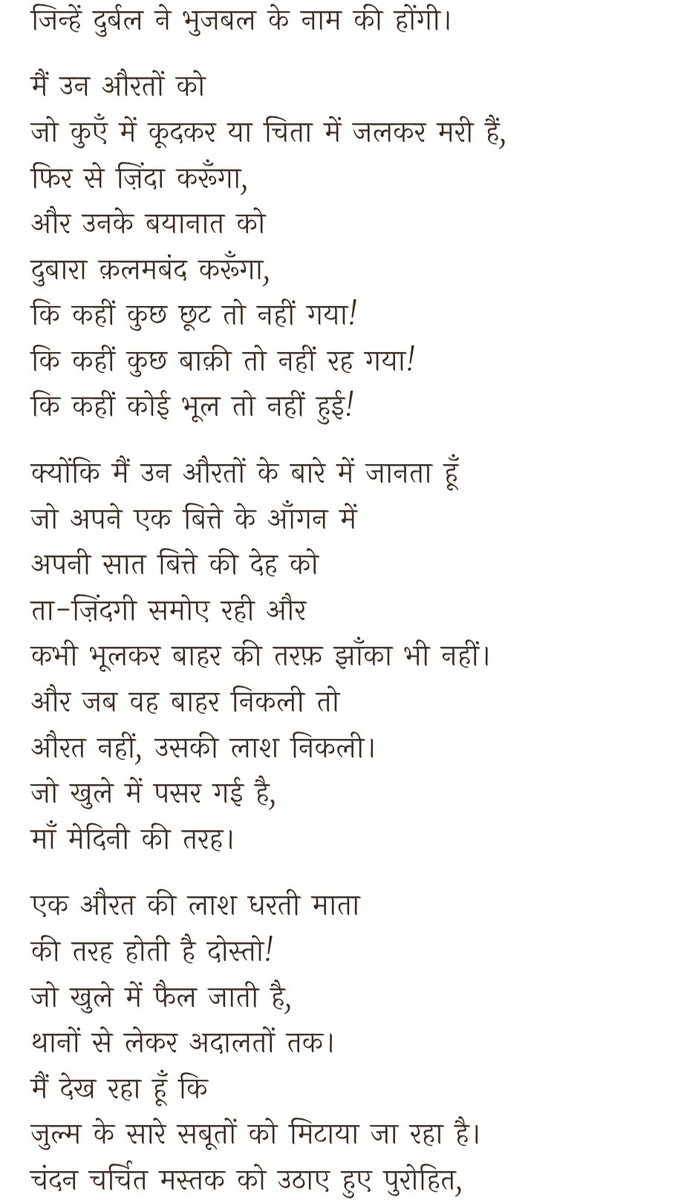 जिन्हें दुर्बल ने भुजबल के नाम की होंगी।
मैं उन औरतों को
जो कुएँ में कूदकर या चिता में जलकर मरी हैं,
फिर से ज़िंदा करूँगा,
और उनके बयानात को
दुबारा क़लमबंद करूँगा,
कि कहीं कुछ छूट तो नहीं गया!
कि कहीं कुछ बाक़ी तो नहीं रह गया!
कि कहीं कोई भूल तो नहीं हुई!
क्योंकि मैं उन औरतों के बारे में जानता हूँ
जो अपने एक बित्ते के आँगन में
अपनी सात बित्ते की देह को
ता-ज़िंदगी समोए रही और
कभी भूलकर बाहर की तरफ़ झाँका भी नहीं।
और जब वह बाहर निकली तो
औरत नहीं, उसकी लाश निकली।
जो खुले में पसर गई है,
माँ मेदिनी की तरह।
एक औरत की लाश धरती माता
की तरह होती है दोस्तो!
जो खुले में फैल जाती है,
थानों से लेकर अदालतों तक।
मैं देख रहा हूँ कि
जुल्म के सारे सबूतों को मिटाया जा रहा है।
चंदन चर्चित मस्तक को उठाए हुए पुरोहित,